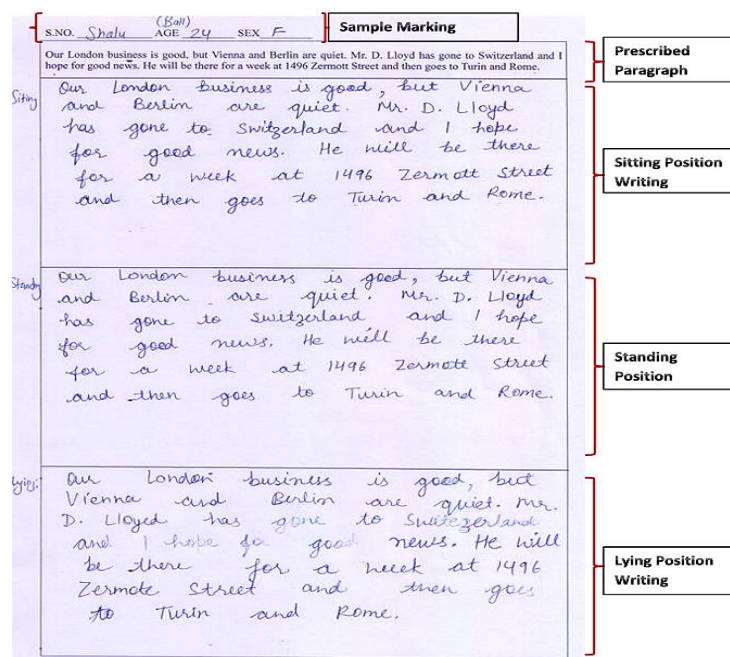 (Ball)
S.NO. Shalu AGE 24 SEX F
Sample Marking
Our London business is good, but Vienna and Berlin are quiet. Mr. D. Lloyd has gone to Switzerland and I
hope for good news. He will be there for a week at 1496 Zermott Street and then goes to Turin and Rome.
Prescribed
Paragraph
Siting
Our London business is good, but Vienna
and Berlin are quiet. Mr. D. Lloyd
has gone to Switzerland and I hope
for good news. He will be there
for a week at 1496 Zermott Street
and then goes to Turin and Rome.
Sitting Position
Writing
Standg
Our London business is good, but Vienna
and Berlin are quiet. Mr. D. Lloyd
has gone to Switzerland and I hope
for good news. He will be there
for a week at 1496 Zermott Street
and then goes to Turin and Rome.
Standing
Position
Lying:
Our London business is good, but
Vienna and Berlin are quiet. Mr.
D. Lloyed has gone to Switezerland
and I hope for good news. He will
be there for a week at 1496
Zermote Street and then goes
to Turin and Rome.
Lying Position
Writing